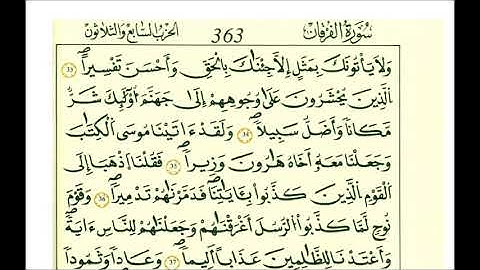 سُورَةُ الفُرْقَان 363 الحزب السابع والثلاثون
وَلَا يَأْتُونَكَ بِمَثَلٍ إِلَّا جِئْنَٰكَ بِالْحَقِّ وَأَحْسَنَ تَفْسِيراًۖ 33
اَلذِينَ يُحْشَرُونَ عَلَىٰ وُجُوهِهِمْ إِلَىٰ جَهَنَّمَ أُوْلَٰٓئِكَ شَرٌّ
مَّكَاناً وَأَضَلُّ سَبِيلاًۖ 34 وَلَقَدَ اٰتَيْنَا مُوسَى اَلْكِتَٰبَ
وَجَعَلْنَا مَعَهُۥٓ أَخَاهُ هَٰرُونَ وَزِيراًۖ 35 فَقُلْنَا اَذْهَبَا إِلَى
اَلْقَوْمِ اِلذِينَ كَذَّبُواْ بِـَٔايَٰتِنَاۖ فَدَمَّرْنَٰهُمْ تَدْمِيراًۖ 36 وَقَوْمَ
نُوحٍ لَّمَّا كَذَّبُواْ اُلرُّسُلَ أَغْرَقْنَٰهُمْ وَجَعَلْنَٰهُمْ لِلنَّاسِ ءَايَةًۖ
وَأَعْتَدْنَا لِلظَّٰلِمِينَ عَذَاباً أَلِيماًۖ 37 وَعَاداً وَثَمُوداً